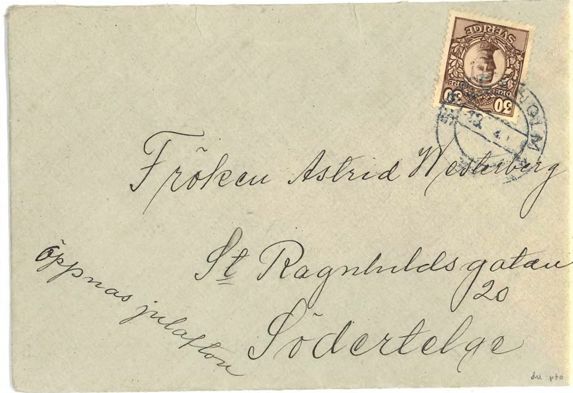 SVERIGE
30 30
HOLM
Fröken Astrid Westerberg
St Ragnhildsgatan
20
Södertelge
öppnas julafton